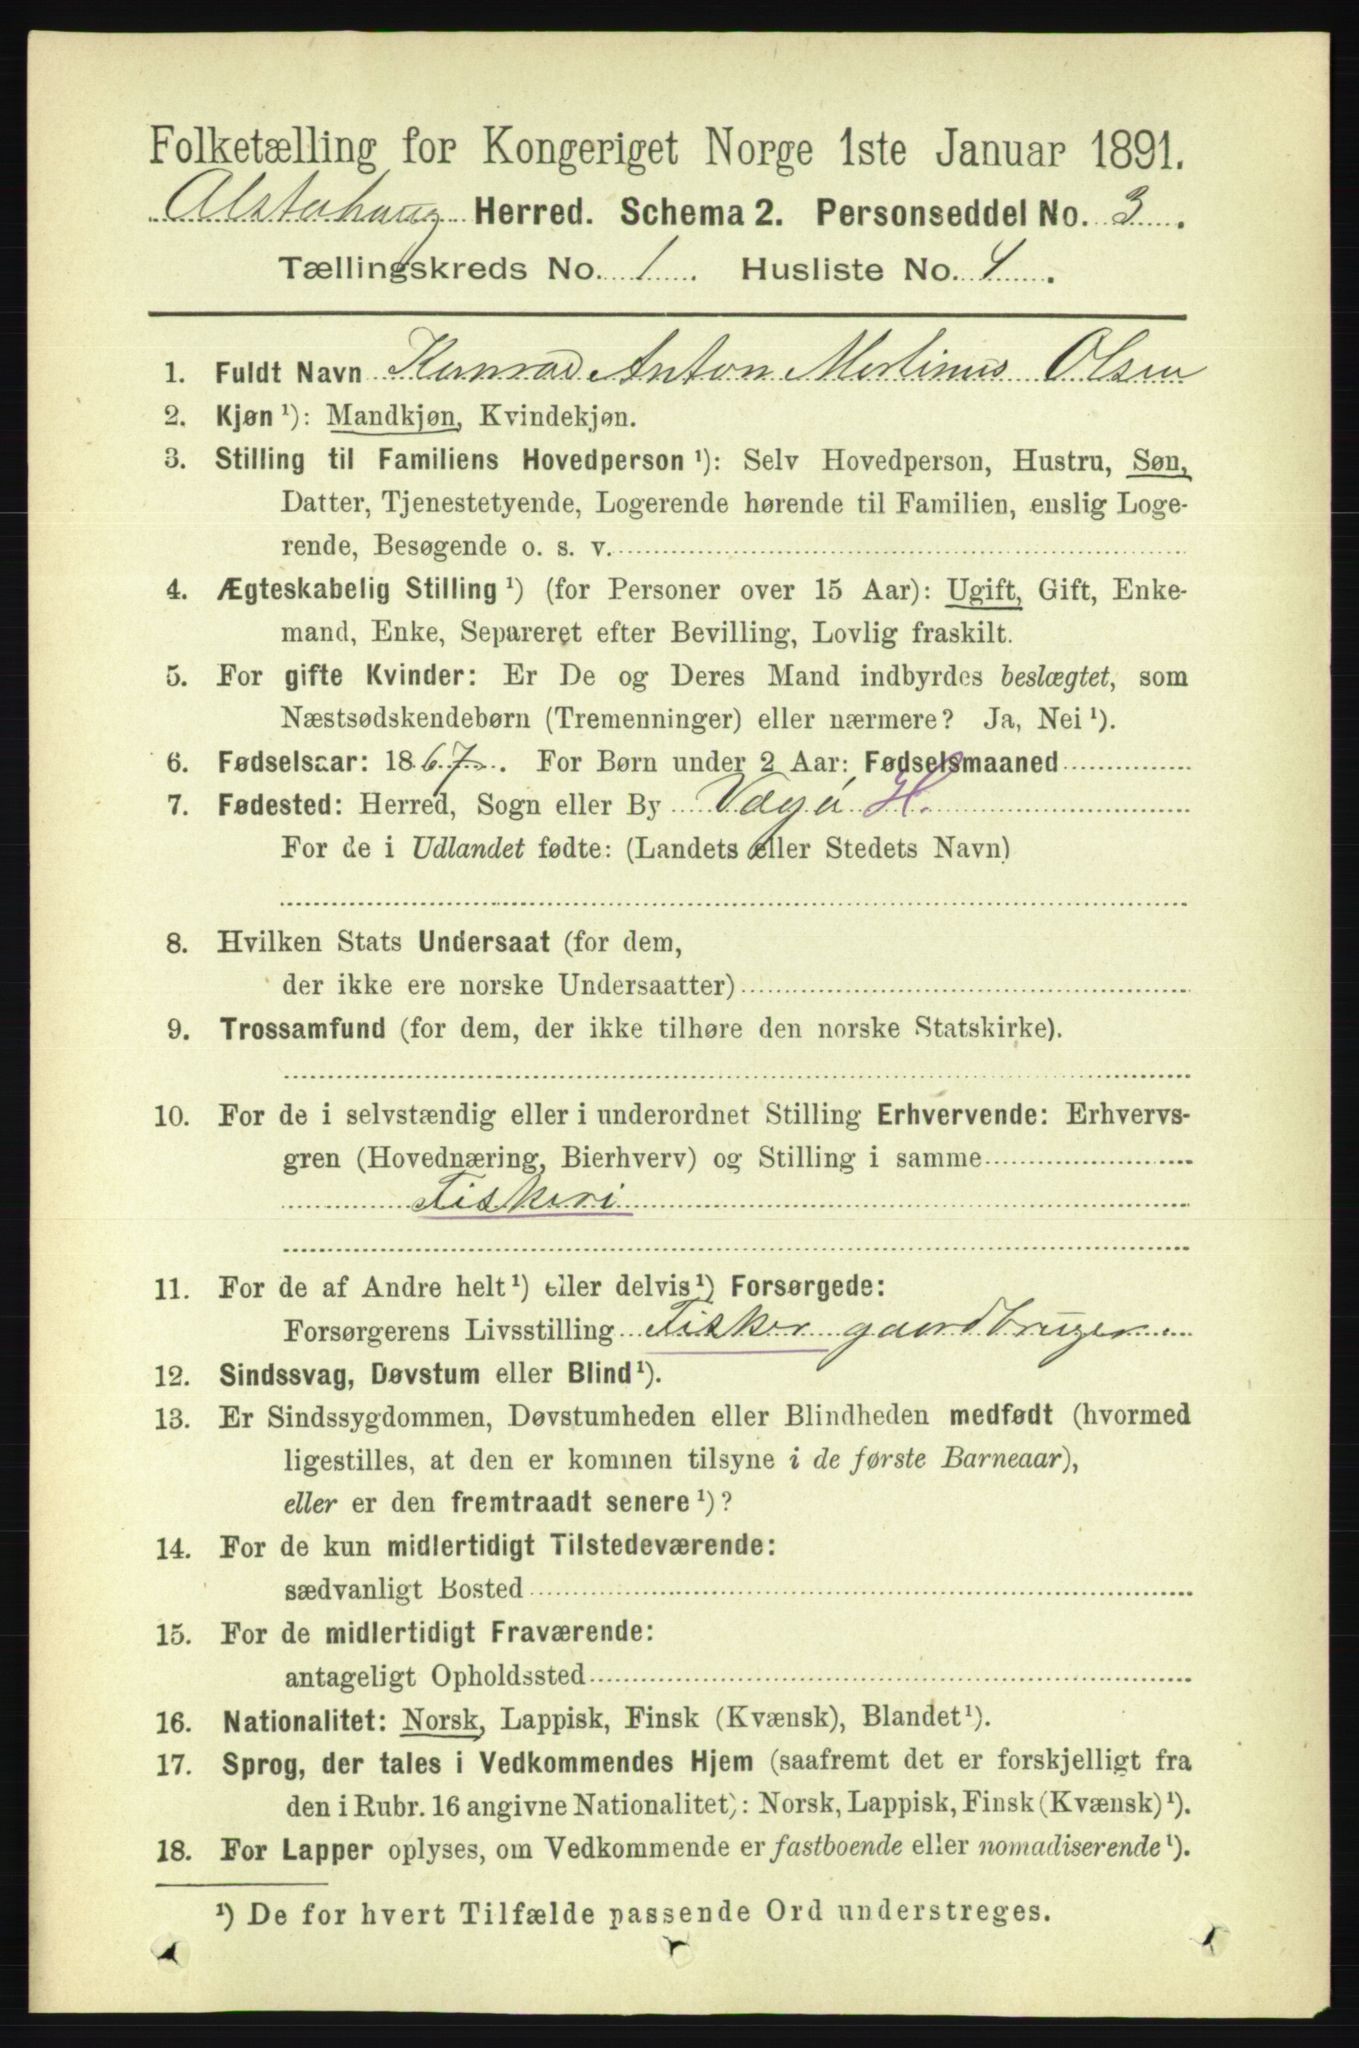 Folketælling for Kongeriget Norge 1ste Januar 1891.
Alstahaug Herred. Schema 2. Personseddel No. 3.
Tællingskreds No. 1. Husliste No. 4.
1. Fuldt Navn Konrad Anton Morlinus Olsen
2. Kjøn ¹): Mandkjøn, Kvindekjøn.
3. Stilling til Familiens Hovedperson ¹): Selv Hovedperson, Hustru, Søn,
Datter, Tjenestetyende, Logerende hørende til Familien, enslig Loge-
rende, Besøgende o. s. v.
4. Ægteskabelig Stilling ¹) (for Personer over 15 Aar): Ugift, Gift, Enke-
mand, Enke, Separeret efter Bevilling, Lovlig fraskilt.
5. For gifte Kvinder: Er De og Deres Mand indbyrdes beslægtet, som
Næstsødskendebørn (Tremenninger) eller nærmere? Ja, Nei ¹).
6. Fødselsaar: 1867. For Børn under 2 Aar: Fødselsmaaned
7. Fødested: Herred, Sogn eller By Vægø H.
For de i Udlandet fødte: (Landets eller Stedets Navn)
8. Hvilken Stats Undersaat (for dem,
der ikke ere norske Undersaatter)
9. Trossamfund (for dem, der ikke tilhøre den norske Statskirke).
10. For de i selvstændig eller i underordnet Stilling Erhvervende: Erhvervs-
gren (Hovednæring, Bierhverv) og Stilling i samme
Fiskeri
11. For de af Andre helt ¹) eller delvis ¹) Forsørgede:
Forsørgerens Livsstilling Fisker gaardbruger
12. Sindssvag, Døvstum eller Blind ¹).
13. Er Sindssygdommen, Døvstumheden eller Blindheden medfødt (hvormed
ligestilles, at den er kommen tilsyne i de første Barneaar),
eller er den fremtraadt senere ¹)?
14. For de kun midlertidigt Tilstedeværende:
sædvanligt Bosted
15. For de midlertidigt Fraværende:
antageligt Opholdssted
16. Nationalitet: Norsk, Lappisk, Finsk (Kvænsk), Blandet ¹).
17. Sprog, der tales i Vedkommendes Hjem (saafremt det er forskjelligt fra
den i Rubr. 16 angivne Nationalitet): Norsk, Lappisk, Finsk (Kvænsk) ¹).
18. For Lapper oplyses, om Vedkommende er fastboende eller nomadiserende ¹).
¹) De for hvert Tilfælde passende Ord understreges.